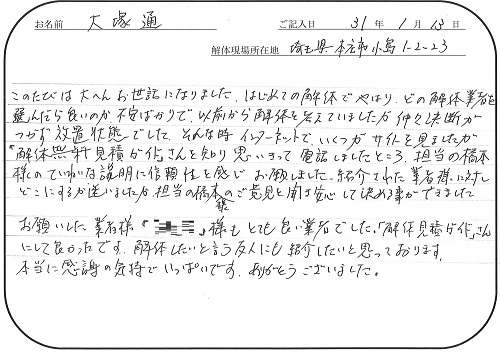 お名前 大塚通 ご記入日 31年1月13日
解体現場所在地 埼玉県本庄市小島1-2-23
このたびは大へんお世話になりました。はじめての解体でやはり、どの解体業者を
選んだら良いのか不安ばかりで、以前から解体を考えていましたが仲々決断が
つかず放置状態でした。そんな時インターネットで、いくつかサイトを見ましたが
「解体無料見積ガイド」さんを知り思いきって電話しましたところ、担当の橋本
様のていねいな説明に信頼性を感じお願しました。紹介された業者様に対し
どこにするか迷いましたが、担当の橋本様のご意見を聞き安心して決める事ができました
お願いした業者様「 」様もとても良い業者でした。「解体見積ガイド」さん
にして良かったです。解体したいと言う友人にも紹介したいと思っております。
本当に感謝の気持でいっぱいです。ありがとうございました。